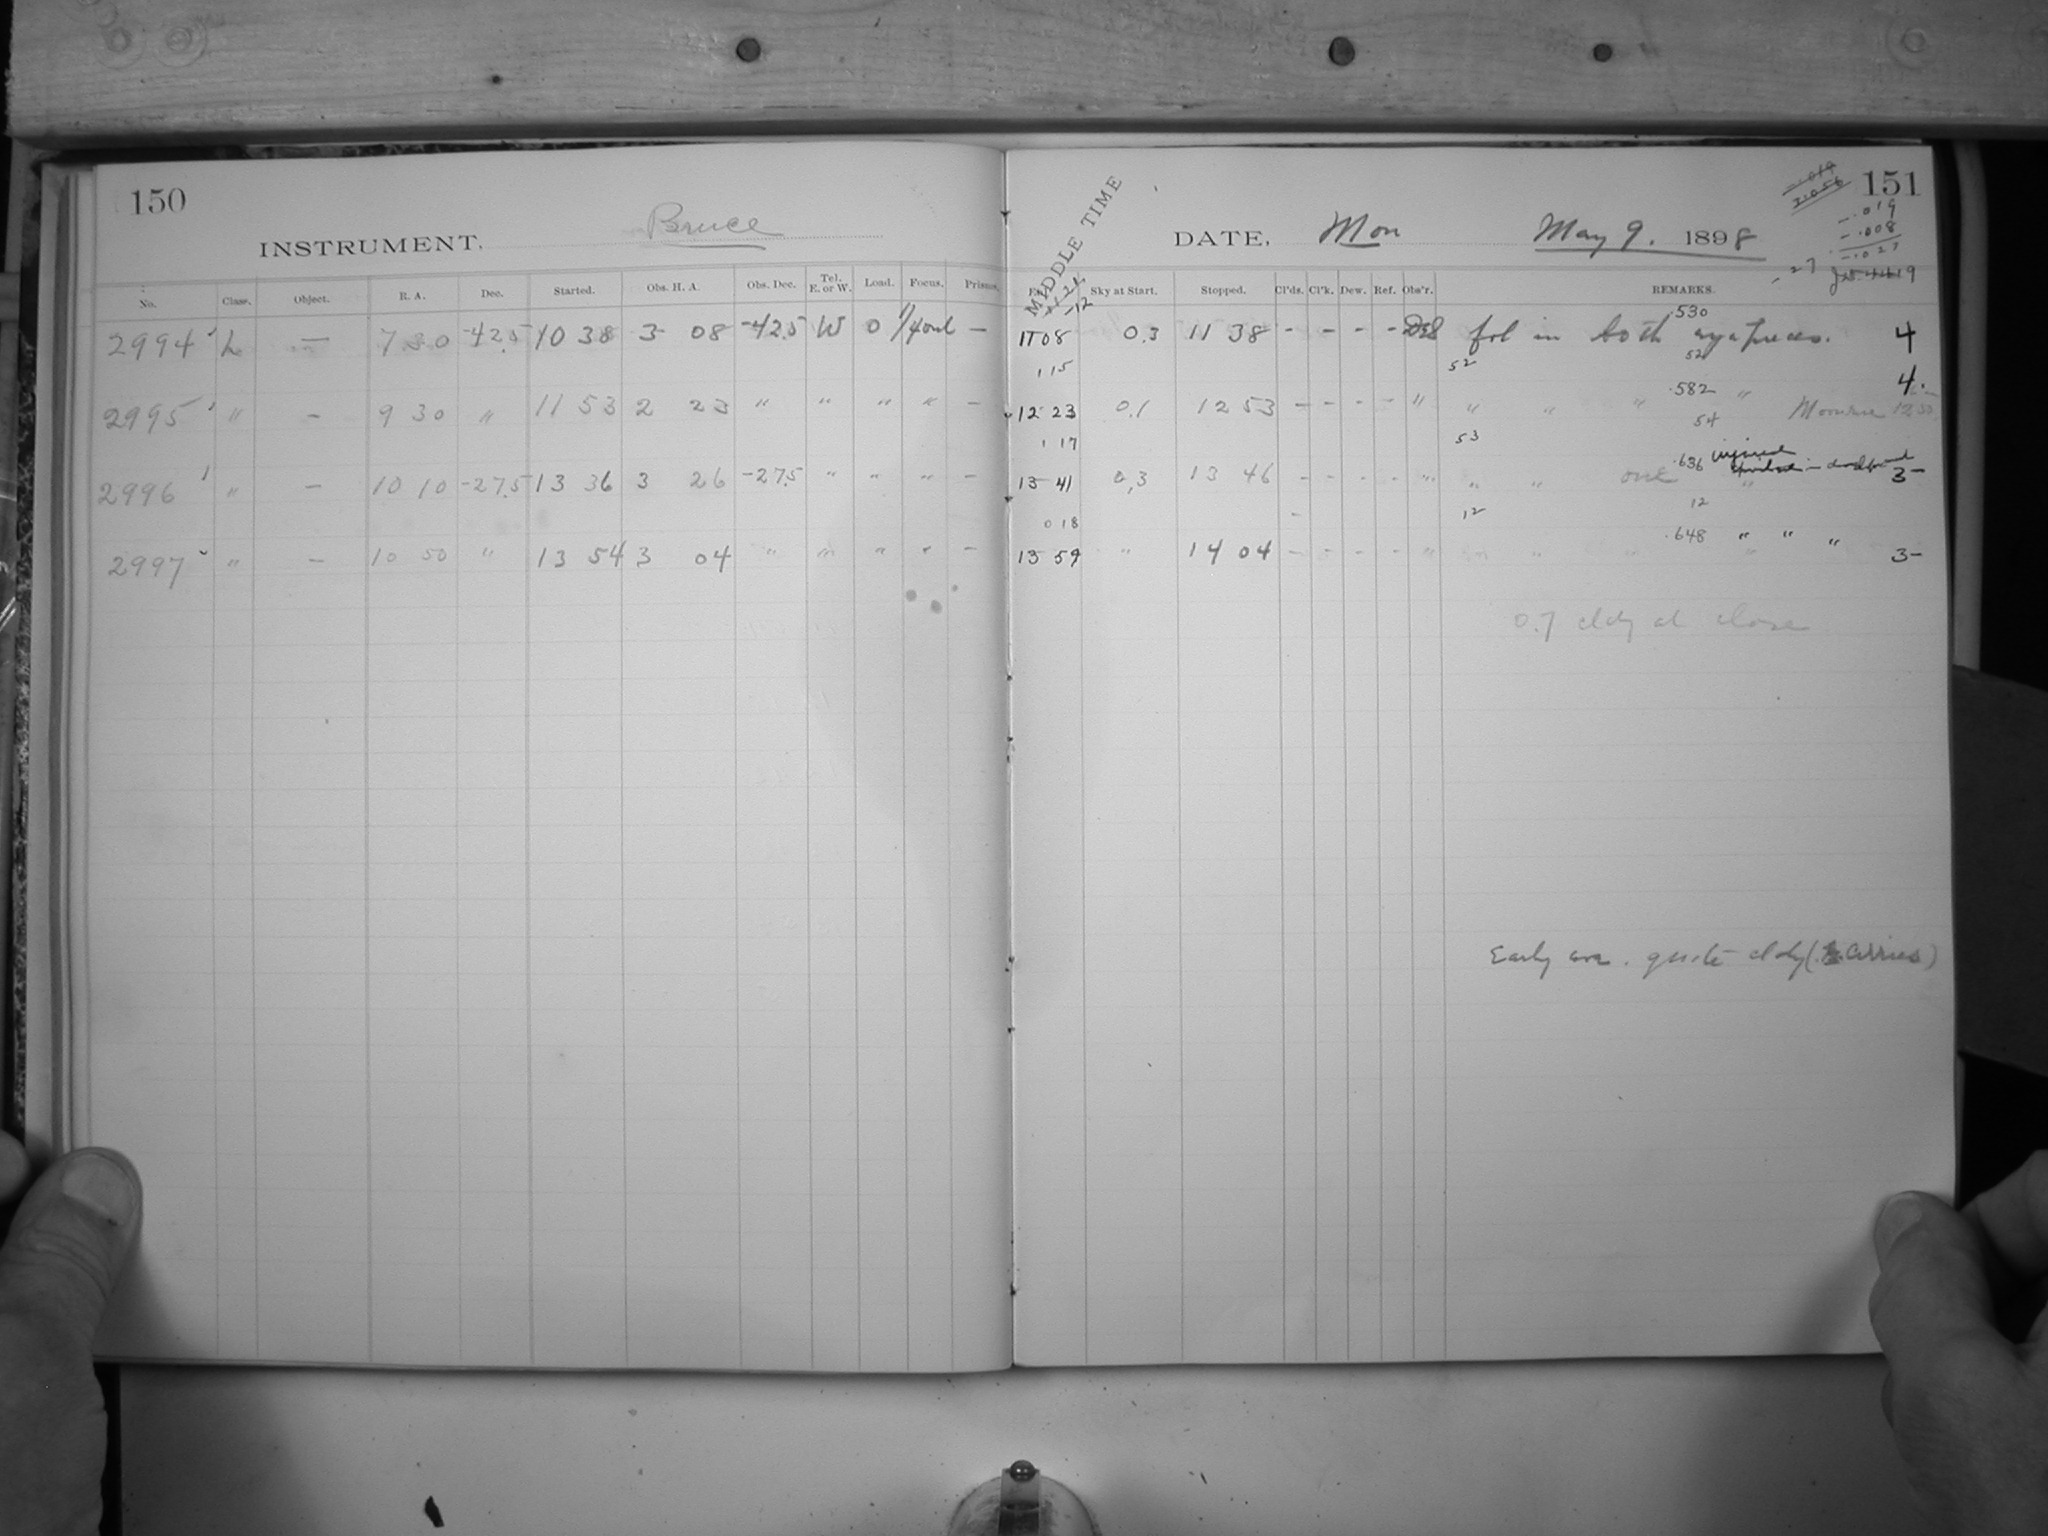 150
INSTRUMENT, Bruce
No. Class. Object. R. A. Dec. Started. Obs. H. A. Obs. Dec. Tel. E. or W. Load. Focus. Prisms.
2994 L — 7 30 -42.5 10 38 3 08 -42.5 W 0 —
2995 " — 9 30 " 11 53 2 23 " " " " —
2996 " — 10 10 -27.5 13 36 3 26 -27.5 " " " —
2997 " — 10 50 " 13 54 3 04 " " " " —
151
-.019
-.008
-.027
-27
MIDDLE TIME
DATE, Mon May 9. 1898
Sky at Start. Stopped. Cl'ds. Cl'k. Dew. Ref. Obs'r. REMARKS.
.530
11 08 0.3 11 38 - - - - fol in both eyepieces. 4
1 15 52 52
.582
12 23 0.1 12 53 - - - - " " " " " Moonrise 4.
1 17 53 54
.636 injured
13 41 0.3 13 46 - - - - " " " one " 3-
0 18 - 12 12
.648 " " "
13 59 " 14 04 - - - - " " " " " 3-
0.7 cldy at close
Early eve. quite cldy (cirrus)